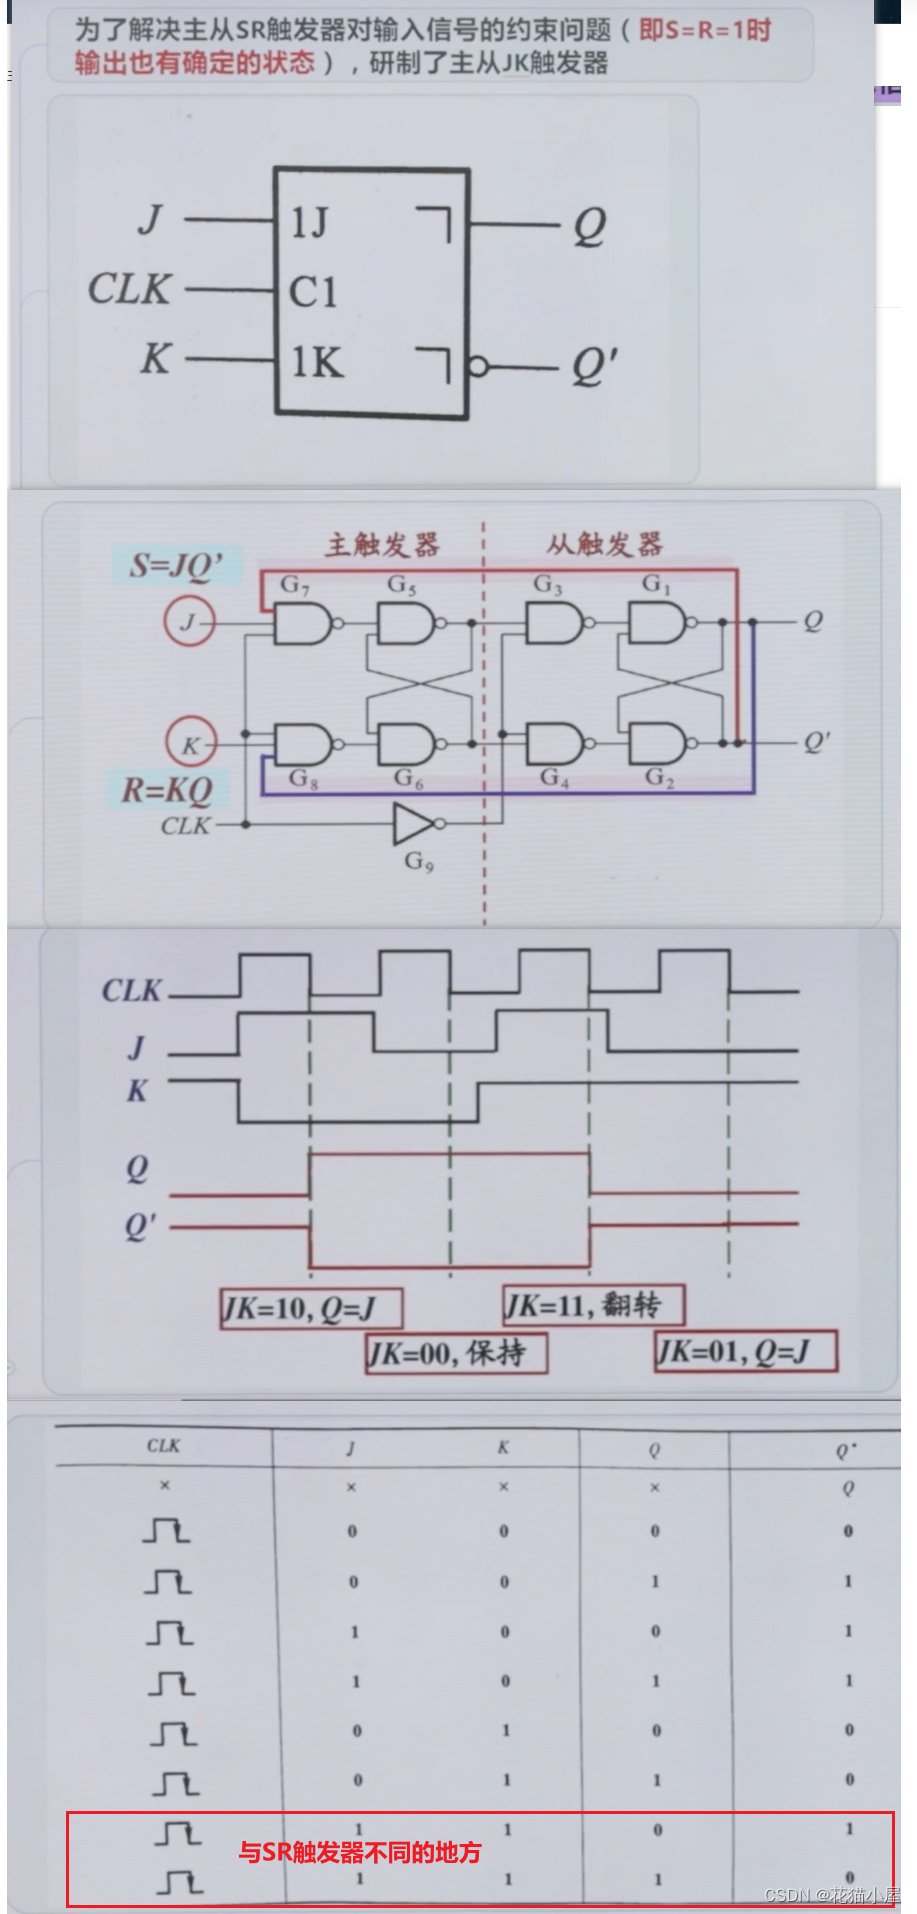 为了解决主从SR触发器对输入信号的约束问题（即S=R=1时
输出也有确定的状态），研制了主从JK触发器
J 1J Q
CLK C1
K 1K Q'
主触发器 从触发器
S=JQ'
G7 G5 G3 G1
J Q
K Q'
G8 G6 G4 G2
R=KQ
CLK
G9
CLK
J
K
Q
Q'
JK=10, Q=J
JK=11, 翻转
JK=00, 保持
JK=01, Q=J
CLK J K Q Q*
× × × × Q
0 0 0 0
0 0 1 1
1 0 0 1
1 0 1 1
0 1 0 0
0 1 1 0
1 1 0 1
与SR触发器不同的地方
1 1 1 0
CSDN @花猫小屋